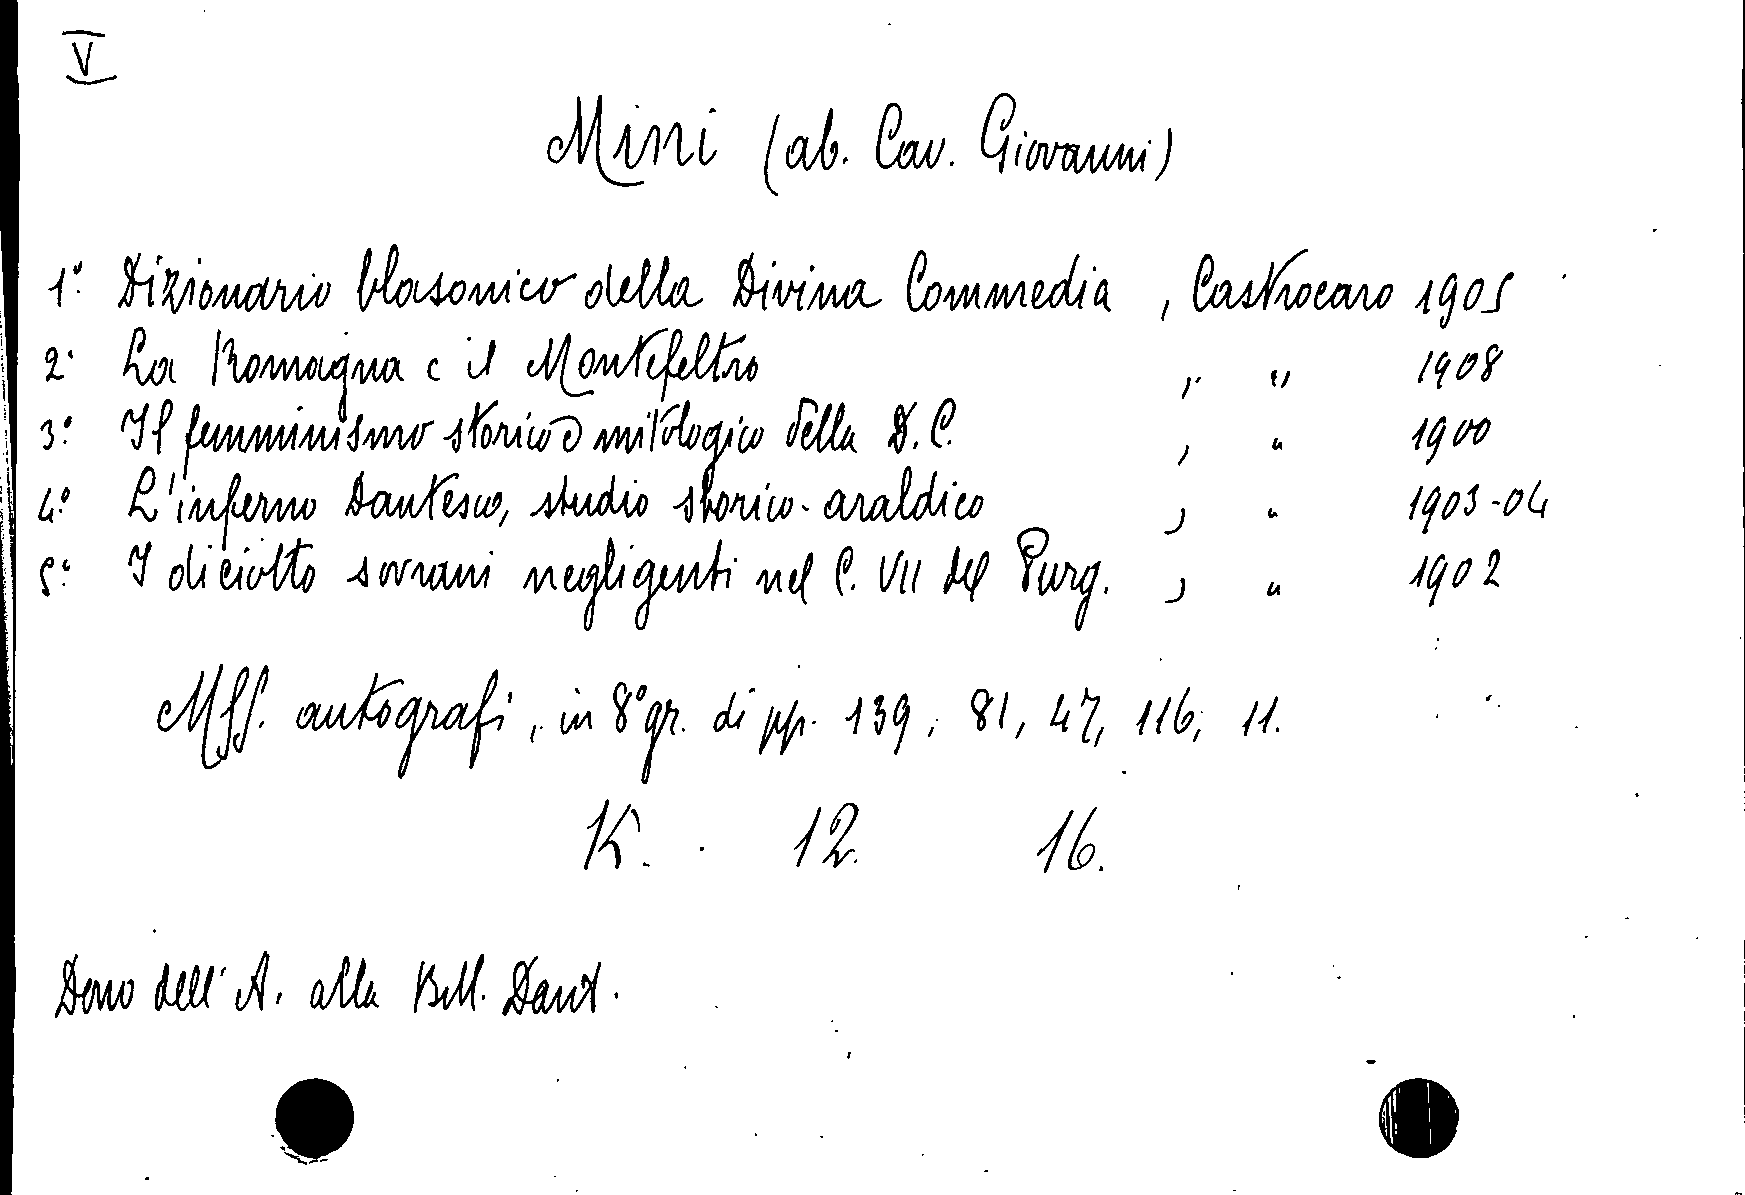 V
Mini (ab. Cav. Giovanni)
1º Dizionario blasonico della Divina Commedia , Castrocaro 1905
2º La Romagna e il Montefeltro , " 1908
3º Il femminismo storico e mitologico della D. C. , " 1900
4º L'inferno Dantesco, studio storico-araldico , " 1903-04
5º I diciotto sovrani negligenti nel C. VII del Purg. , " 1902
Mss. autografi, in 8º gr. di pp. 139, 81, 47, 116, 11.
K. 12. 16.
Dono dell'A. alla Bibl. Dant.